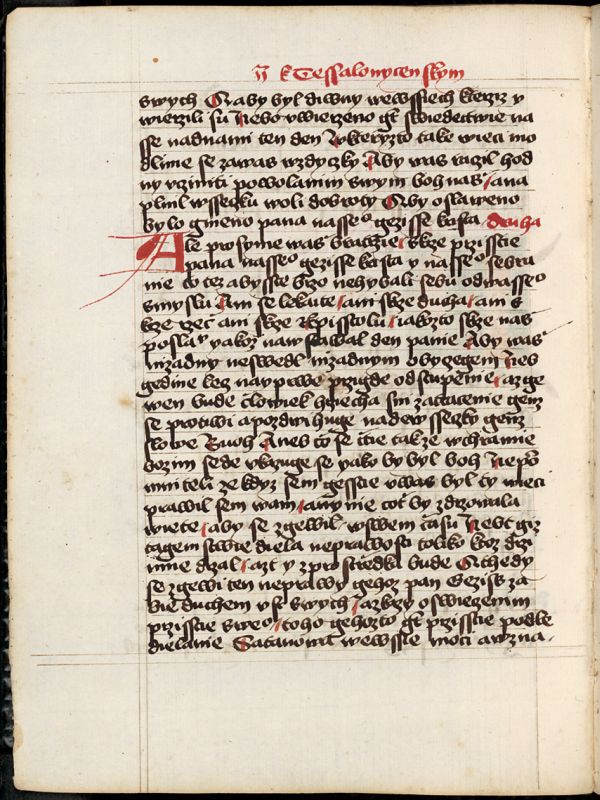 II k Tessalonycenskym
swych A aby byl diwny wewssiech kterziz v
wierzili su Nebo vwierzeno gt swiedectwie na
sse nad nami ten den V kteryzto take wieci mo
dlime se za was wzdyczky Aby was raczil hod
ny vcziniti powolanim swym boh nas a na
plnil wssecku woli dobroty A by oslaweno
bylo gmeno pana nasseo gezisse krista druha
Ale prosyme was bratrzie skrze przisstie
pana nasseo gezisse krista y nasseo sebra
nie to tez abysste brzo nehybali sebu od wasseo
smyslu Ani se lekaite ani skrze ducha ani s
krze rzec ani skrze episstolu iakozto skrze nas
poslau yakoz naw stawal den panie Aby was
nizadny neswedl nizadnym obyczegem Neb
gedine lecz nayprwe przigde odstupenie a zge
wen bude clowiek hriecha sin zatracenie genz
se protiwi a pozdwihuge nadewssecky genz
slowe Buoh Aneb to se ctie takze w chramie
bozim sede vkazuge se yako by byl boh Nepo
mnitelizekdyz sem gesscie v was byl ty wieci
prawil sem wam a nynie cot by zdrzowala
wiete aby se zgewil w swem czasu Nebt giz
tagemstwie diela neprawosti toliko koz drzi
nine drzal azt y z prostredka bude A tehdy
se zgewi ten neprawy gehoz pan Gezis za
bie duchem vst swych a zkazy oswiecenim
przisstie sweo toho gehozto gt przisstie podle
dielanie Satanowa wewssie moci a w zna